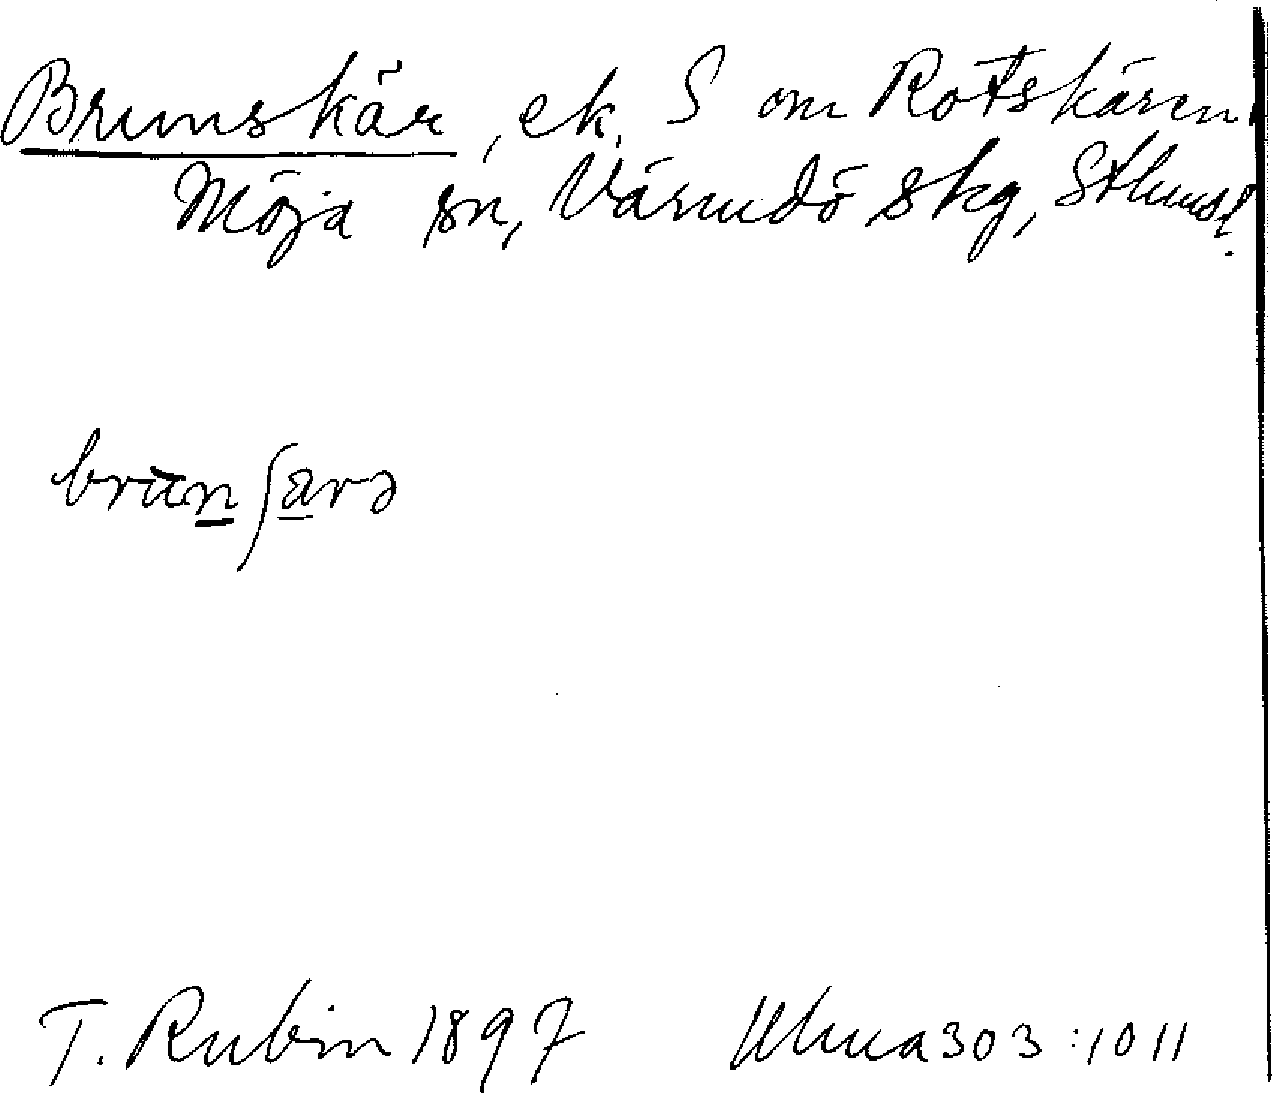 Brunskär, ek. S om Rotskären
Möja sn, Värmdö skg, Sthms l.
brūn̲ʃa̲rə
T. Rubin 1897 Ulma 303:1011